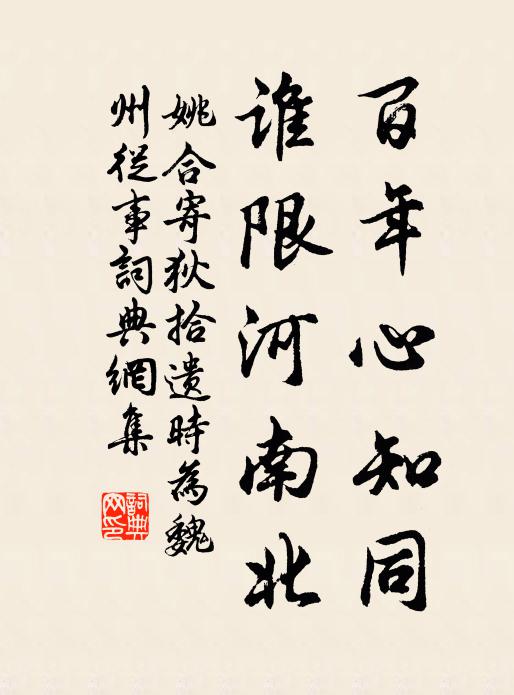 百年心知同
谁限河南北
姚合寄狄拾遗時為魏
州從事詞典網集
詞典
网印